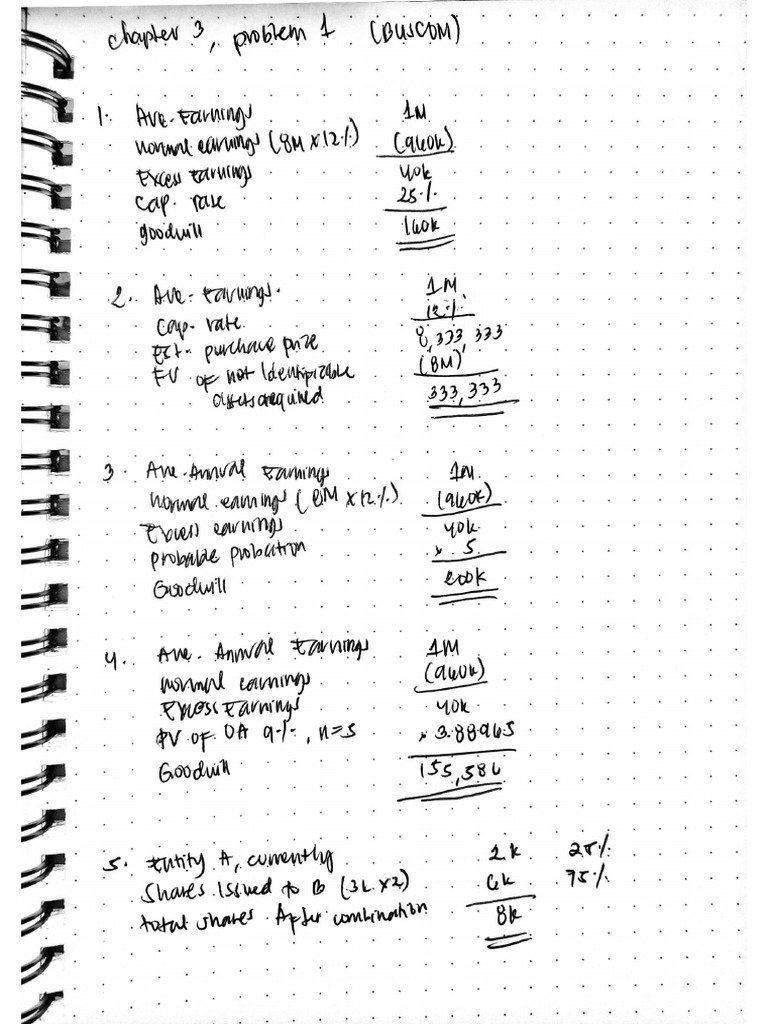 chapter 3, problem 1 (BUSCOM)
1. Ave. Earnings 1M
normal earnings (8M x 12%) (960k)
Excess Earnings 40k
Cap. rate 25%
goodwill 160k
2. Ave. Earnings. 1M
Cap. rate 12%
Est. purchase price 8,333,333
FV of net Identifiable (8M)
assets acquired 333,333
3. Ave. Annual Earnings 1M
normal earnings (8M x 12%) (960k)
Excess earnings 40k
probable x 5
Goodwill 200k
4. Ave. Annual Earnings 1M
normal earnings (960k)
Excess Earnings 40k
PV of OA 9%, n=5 x 3.88965
Goodwill 155,586
5. Entity A, currently 2k 25%
Shares Issued to B (3k x 2) 6k 75%
total shares After combination 8k